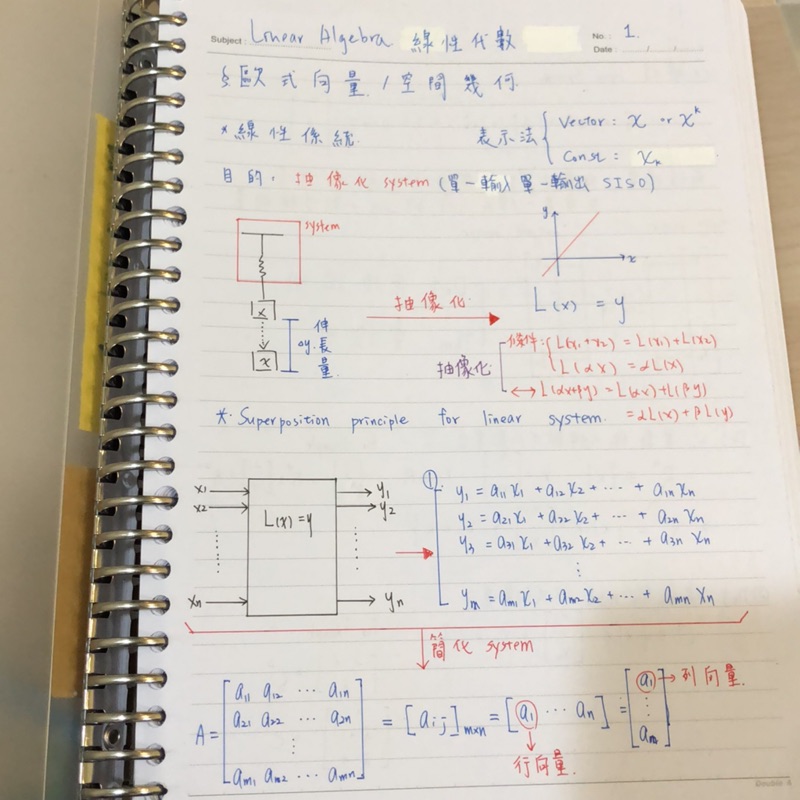 Subject: Linear Algebra 線性代數 No.: 1.
Date: / /
§ 歐式向量 / 空間幾何
* 線性係統 表示法 { Vector: x or x^k
Const: x_k
目的: 抽像化 system (單一輸入 單一輸出 SISO)
system
y
x
x
Δy 伸長量
x
抽像化
L(x) = y
抽像化
條件: { L(x₁+x₂) = L(x₁)+L(x₂)
L(αx) = αL(x)
↔ L(αx+βy) = L(αx)+L(βy)
= αL(x)+βL(y)
*. Superposition principle for linear system.
x₁
x₂
xn
L(x)=y
y₁
y₂
yn
①
y₁ = a₁₁x₁ + a₁₂x₂ + ⋯ + a₁nxn
y₂ = a₂₁x₁ + a₂₂x₂ + ⋯ + a₂nxn
y₃ = a₃₁x₁ + a₃₂x₂ + ⋯ + a₃nxn
⋮
ym = am₁x₁ + am₂x₂ + ⋯ + amnxn
簡化 system
A = [a₁₁ a₁₂ ⋯ a₁n
a₂₁ a₂₂ ⋯ a₂n
⋮
am₁ am₂ ⋯ amn]
= [aij]m×n = [a₁ ⋯ an] = [a₁ ⋮ am]
→ 列向量.
行向量.
Double A